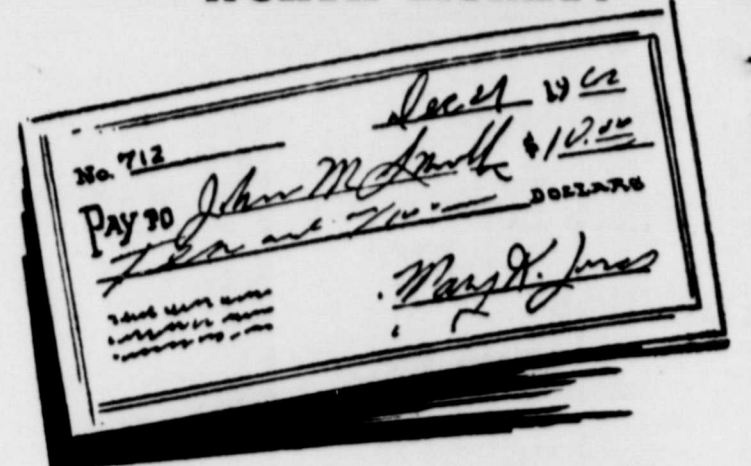 Dec 21 1962
No. 712
PAY TO John M Smith $10.00
Ten and DOLLARS
Mary K. Jones